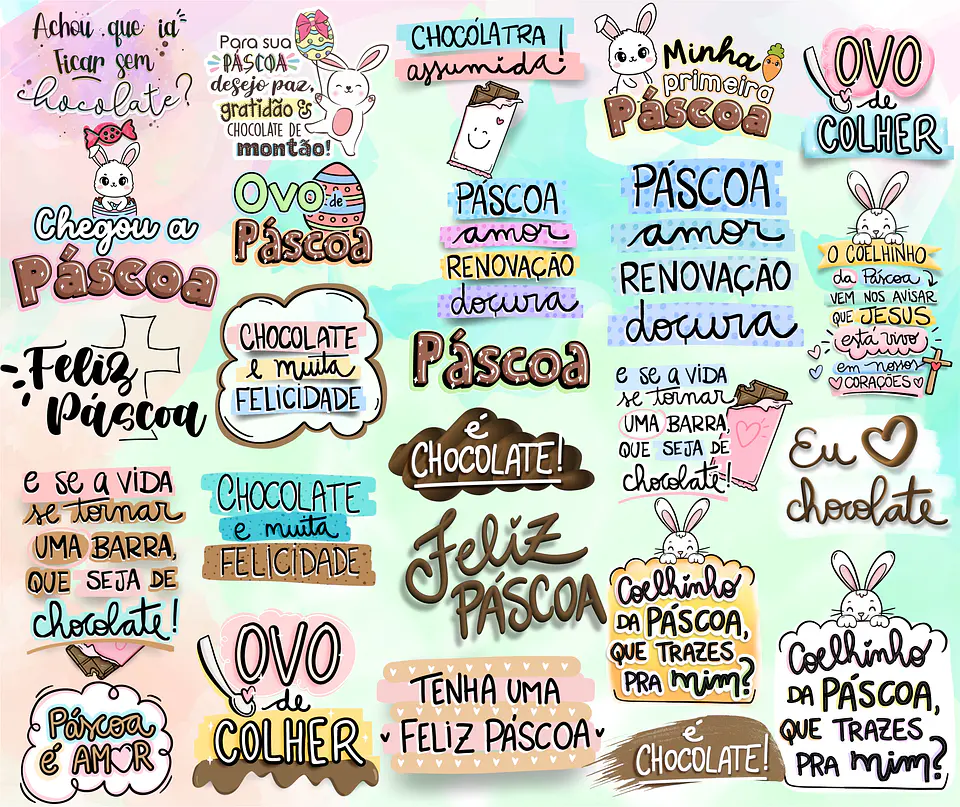 Achou que ia
ficar sem
chocolate?
Para sua
PÁSCOA
desejo paz,
gratidão &
CHOCOLATE DE
montão!
CHOCÓLATRA
assumida!
Minha
primeira
Páscoa
OVO
de
COLHER
Chegou a
Páscoa
Ovo
de
Páscoa
PÁSCOA
amor
RENOVAÇÃO
doçura
PÁSCOA
amor
RENOVAÇÃO
doçura
O COELHINHO
da Páscoa
VEM NOS AVISAR
QUE JESUS
está vivo
em nossos
CORAÇÕES
Feliz
Páscoa
CHOCOLATE
e muita
FELICIDADE
Páscoa
e se a VIDA
se tornar
UMA BARRA,
QUE SEJA DE
chocolate!
é
CHOCOLATE!
Eu
chocolate
e se a VIDA
se tornar
UMA BARRA,
QUE SEJA DE
chocolate!
CHOCOLATE
e muita
FELICIDADE
Feliz
PÁSCOA
Coelhinho
DA PÁSCOA,
QUE TRAZES
PRA mim?
Coelhinho
DA PÁSCOA,
QUE TRAZES
PRA mim?
Páscoa
é AMOR
OVO
de
COLHER
TENHA UMA
FELIZ PÁSCOA
é
CHOCOLATE!